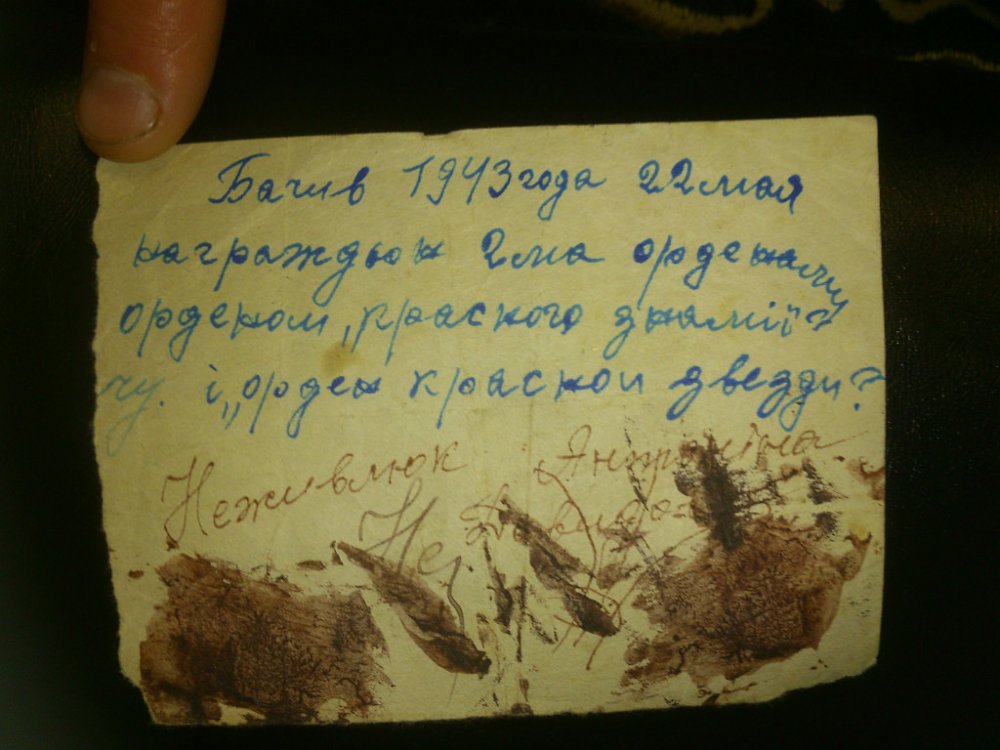 Бачив 1943 года 22 мая
награждьон 2ма орденами
орденом „красного знамії?
чу. і „орден красной звезди?
Неживлюк Антоніна
Не